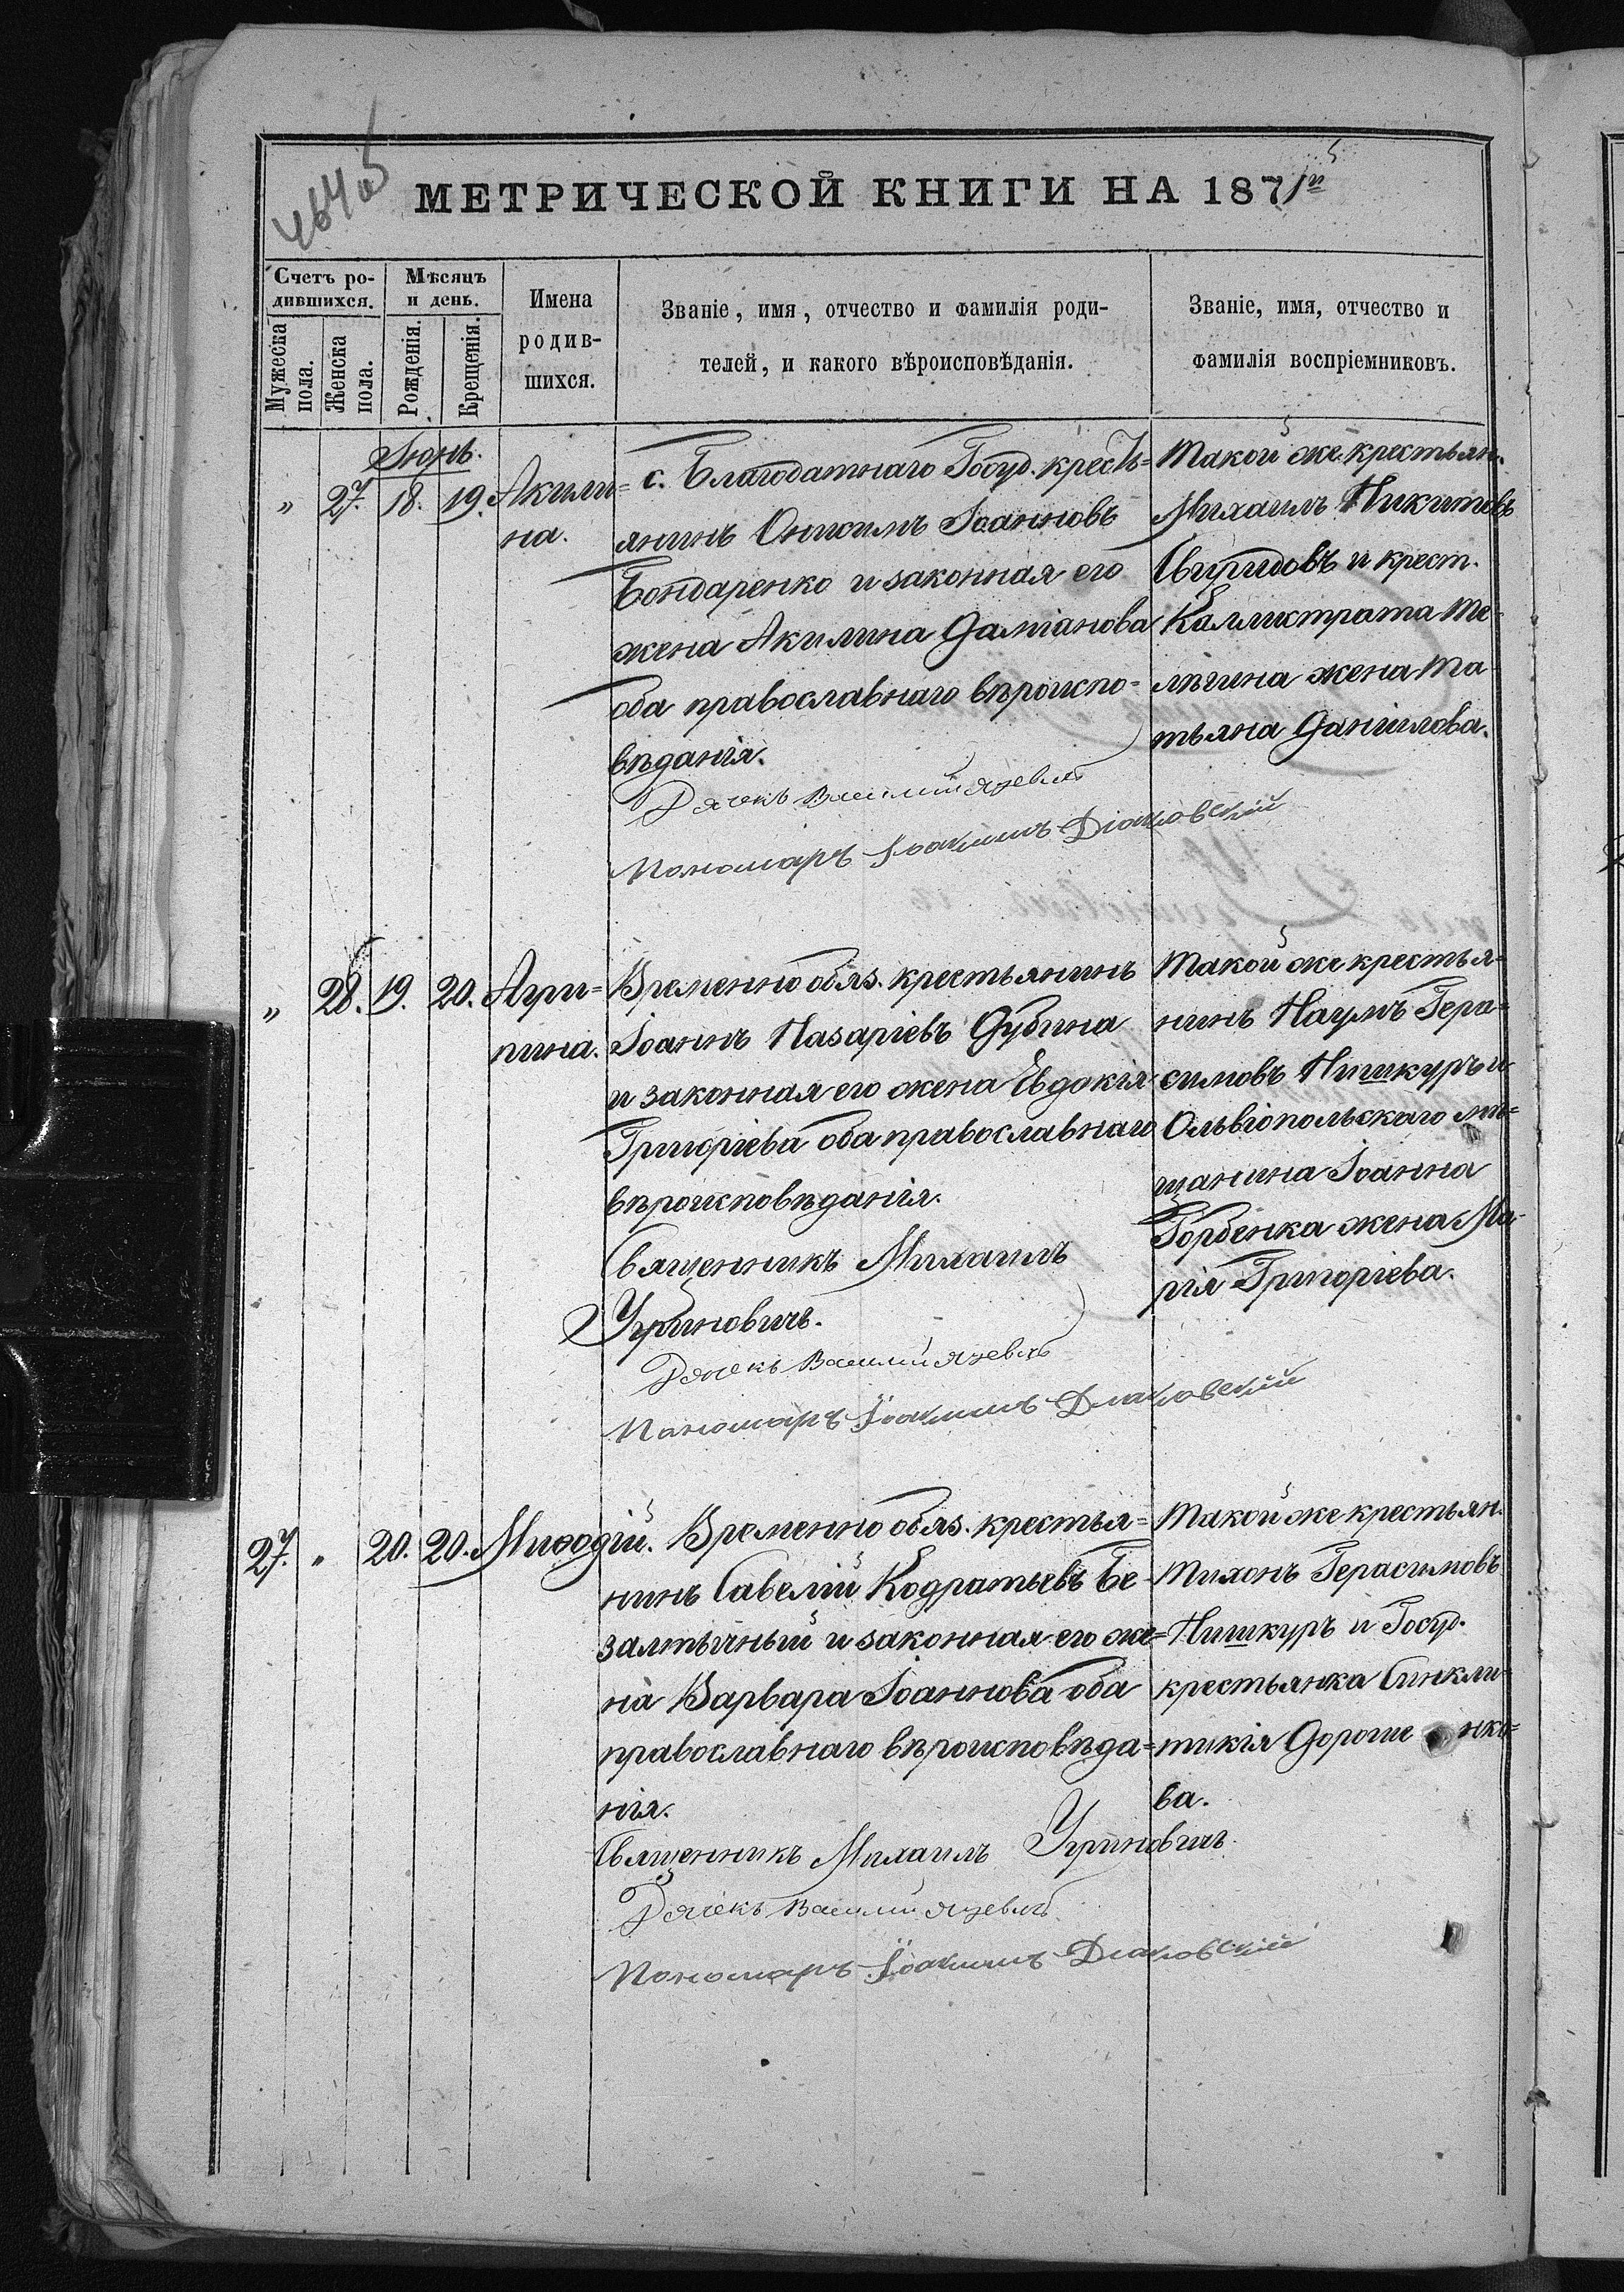 464об
МЕТРИЧЕСКОЙ КНИГИ НА 1871й
Счетъ ро-
дившихся.
Мужеска
пола.
Женска
пола.
Мѣсяцъ
и день.
Рожденія.
Крещенія.
Имена
родив-
шихся.
Званіе, имя, отчество и фамилія роди-
телей, и какого вѣроисповѣданія.
Званіе, имя, отчество и
фамилія воспріемниковъ.
Іюнь.
" 27. 18. 19. Акили=
на.
с. Благодатнаго Госуд. кресть=
янинъ Онисимъ Іоанновъ
Бондаренко и законная его
жена Акилина Даміанова
оба православнаго вѣроиспо=
вѣданія.
Дячекъ Василий Язевичъ
Пономаръ Іоакимъ Діаковскій
Такой же крестьян.
Михаилъ Никитовъ
Свиридовъ и крест.
Каллистрата Те-
лѣгина жена Та-
тьяна Даніилова.
" 28. 19. 20. Агри=
пина.
Временно обяз. крестьянинъ
Іоаннъ Назаріевъ Дубина
и законная его жена Евдокія
Григоріева оба православнаго
вѣроисповѣданія.
Священникъ Михаилъ
Угриновичъ.
Дячекъ Василий Язевичъ
Пономаръ Іоакимъ Диаковский
Такой же крестья=
нинъ Наумъ Гера=
симовъ Пишкуръ и
Ольвіопольскаго мѣ=
щанина Іоанна
Горбенка жена Ма-
рія Григоріева.
27. " 20. 20. Миѳодій.
Временно обяз. крестья=
нинъ Савелій Кодратьевъ Бе-
замѣчный и законная его же=
на Варвара Іоаннова оба
православнаго вѣроисповѣда=
нія.
Священникъ Михаилъ Угриновичъ.
Дячекъ Василий Язевичъ
Пономаръ Іоакимъ Диаковский
Такой же крестьян.
Тихонъ Герасимовъ
Пишкуръ и Госуд.
крестьянка Синкли-
тикія Дороше нко=
ва.